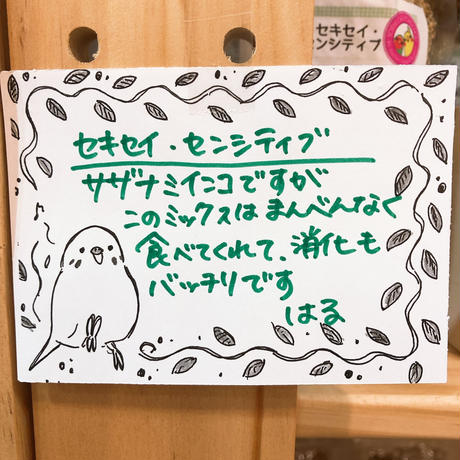 セキセイ・
センシティブ
セキセイ・センシティブ
サザナミインコですが
このミックスは まんべんなく
食べてくれて、消化も
バッチリです
はる